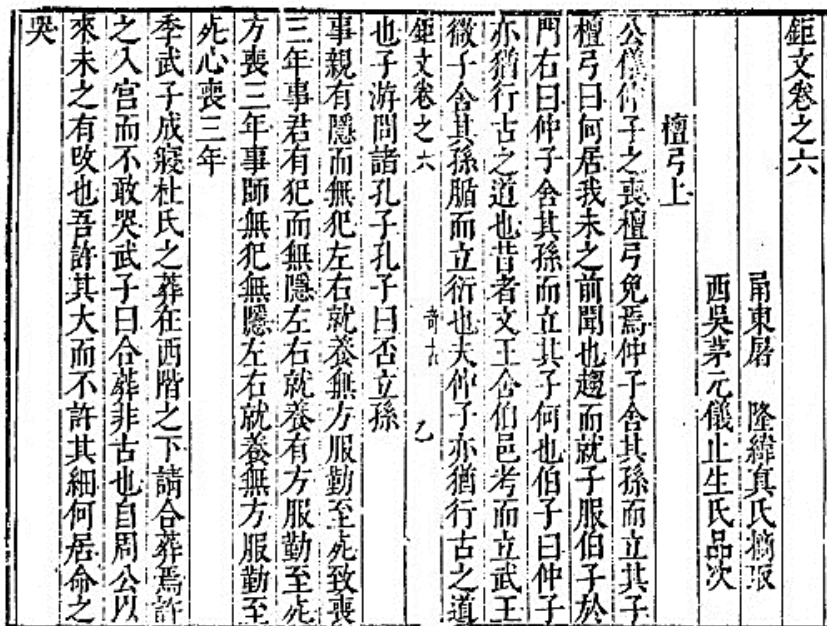 鉅文卷之六
甬東屠　隆緯真氏摘取
西吳茅元儀止生氏品次
檀弓上
公儀仲子之喪檀弓免焉仲子舍其孫而立其子
檀弓曰何居我未之前聞也趨而就子服伯子於
門右曰仲子舍其孫而立其子何也伯子曰仲子
亦猶行古之道也昔者文王舍伯邑考而立武王
微子舍其孫腯而立衍也夫仲子亦猶行古之道
鉅文卷之六　乙
也子游問諸孔子孔子曰否立孫
事親有隱而無犯左右就養無方服勤至死致喪
三年事君有犯而無隱左右就養有方服勤至死
方喪三年事師無犯無隱左右就養無方服勤至
死心喪三年
季武子成寢杜氏之葬在西階之下請合葬焉許
之入宮而不敢哭武子曰合葬非古也自周公以
來未之有改也吾許其大而不許其細何居命之
哭